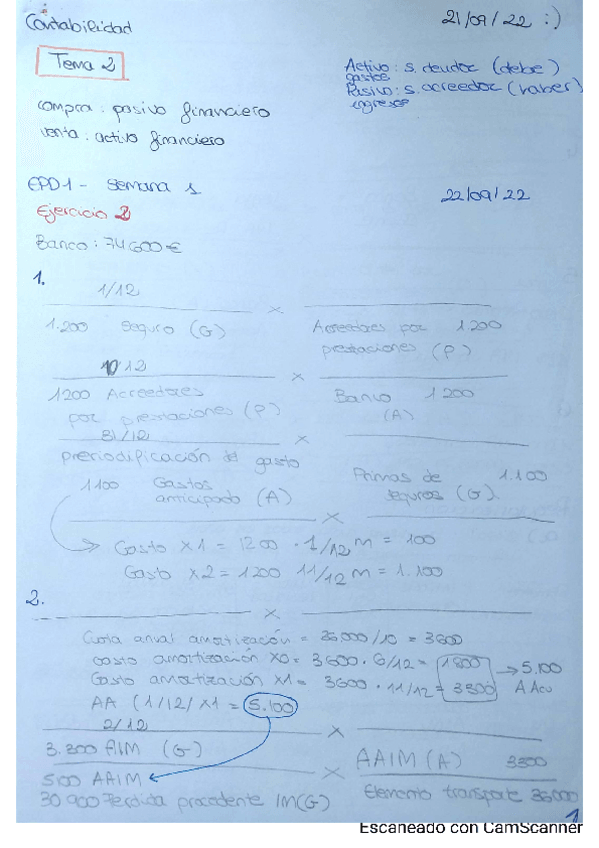 Contabilidad 21/09/22 :)
Tema 2
Activo: s. deudor (debe)
gastos
Pasivo: s. acreedor (haber)
ingresos
compra: pasivo financiero
venta: activo financiero
EPD1 - Semana 1 22/09/22
Ejercicio 2
Banco: 74600€
1.
1/12
1.200 Seguro (G) Acreedores por 1.200
prestaciones (P)
10/12
1200 Acreedores Banco 1200
por prestaciones (P) (A)
31/12
preriodificación del gasto
1100 Gastos Primas de 1.100
anticipado (A) seguros (G)
Gasto X1 = 1200 · 1/12 m = 100
Gasto X2 = 1200 11/12 m = 1.100
2.
Cuota anual amortización = 36000/10 = 3600
Gasto amortización X0 = 3600 · 6/12 = 1800
Gasto amortización X1 = 3600 · 11/12 = 3300 → 5.100
A Acu
AA (1/12/X1 = 5.100
2/12
3.300 AIM (G) AAIM (A) 3300
5100 AAIM
30900 Perdida procedente IM(G) Elemento transporte 36000
1
Escaneado con CamScanner